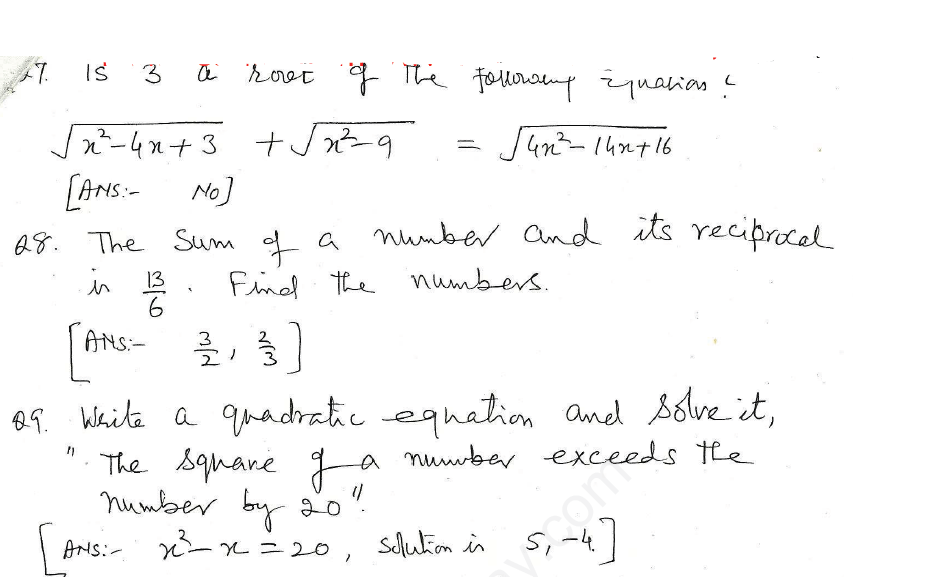 Q7. IS 3 a root of The following Equation?
√x²-4x+3 + √x²-9 = √4x²-14x+16
[ANS:- NO]
Q8. The Sum of a number and its reciprocal
is 13/6. Find the numbers.
[ANS:- 3/2, 2/3]
Q9. Write a quadratic equation and solve it,
". The square of a number exceeds the
number by 20".
[ANS:- x²-x=20, solution is 5, -4.]